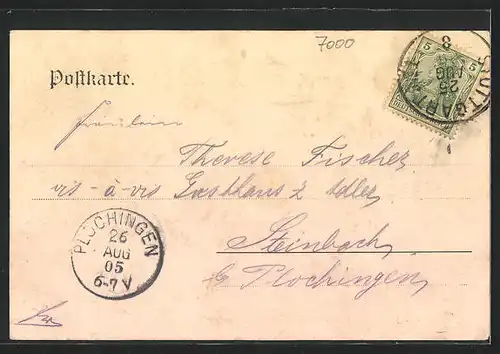 7000
Postkarte.
5
STUTTGART
25
AUG
8
Fräulein
Therese Fischer,
vis-à-vis Gasthaus z Adler,
Steinbach,
b Plochingen,
PLOCHINGEN
26
AUG
05
6-7 V